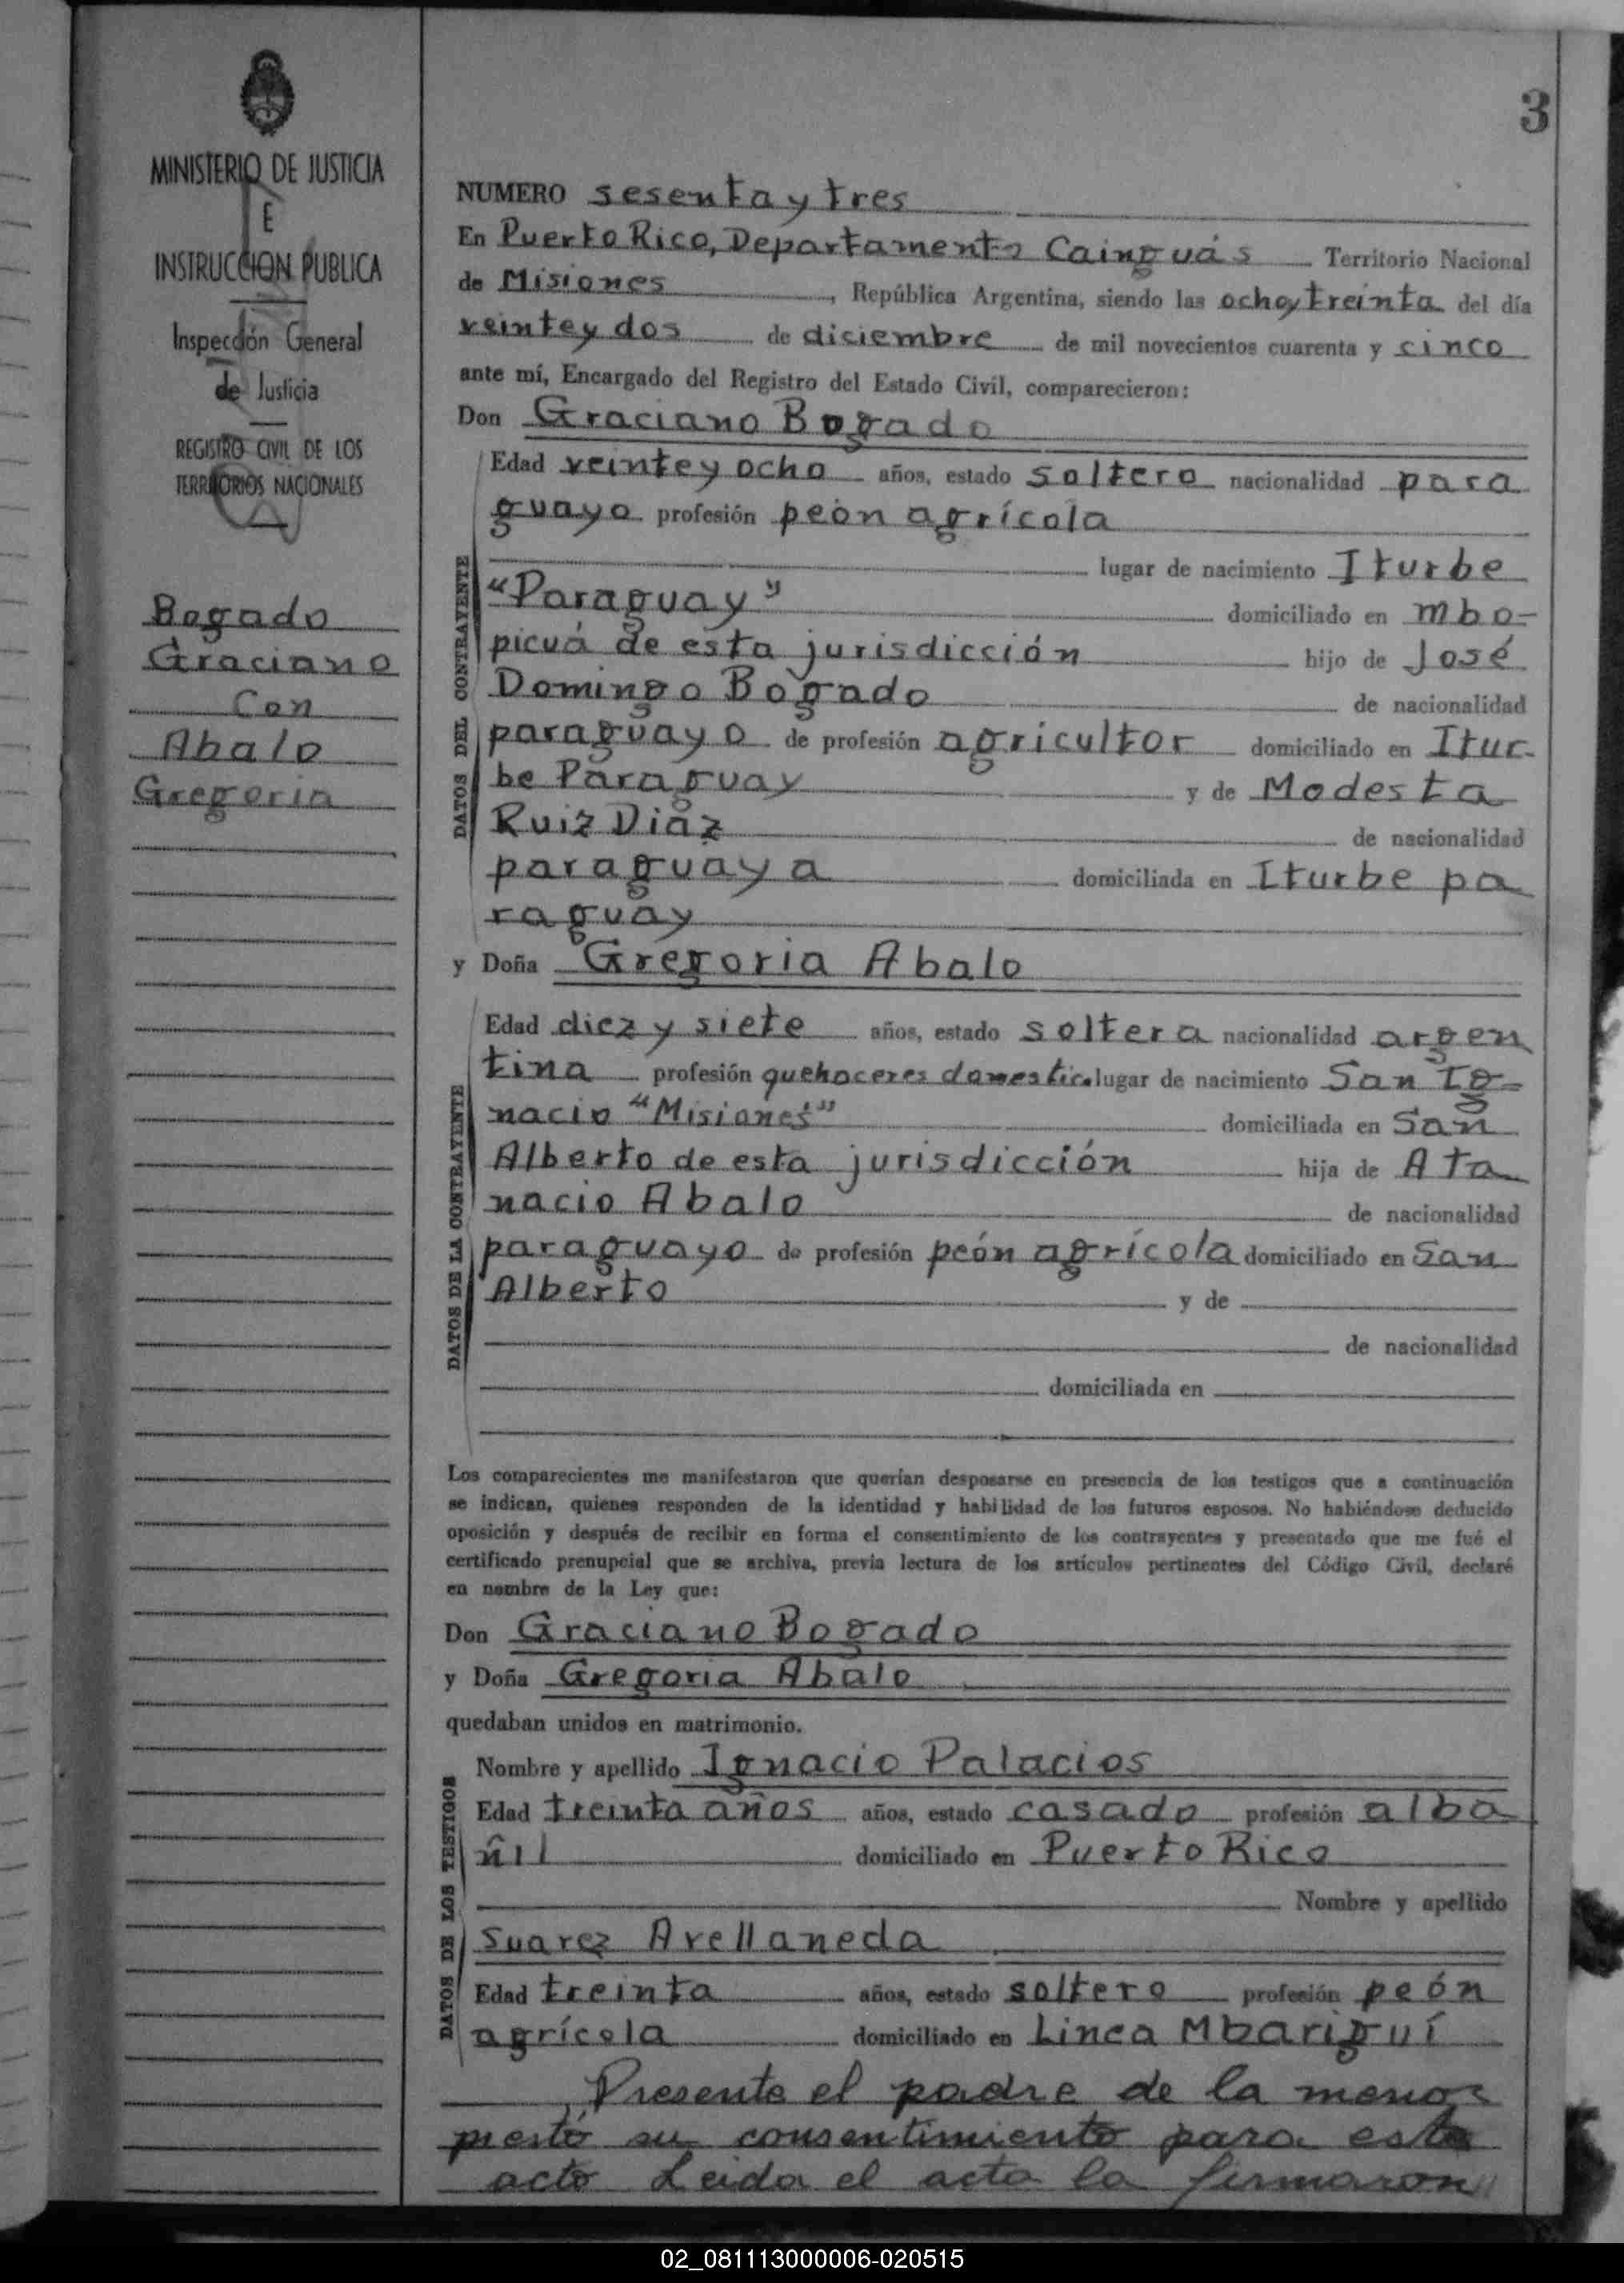 MINISTERIO DE JUSTICIA
E
INSTRUCCION PUBLICA
Inspección General
de Justicia
REGISTRO CIVIL DE LOS
TERRITORIOS NACIONALES
Bogado
Graciano
Con
Abalo
Gregoria
3
NUMERO sesenta y tres
En Puerto Rico, Departamento Cainguás Territorio Nacional
de Misiones, República Argentina, siendo las ocho y treinta del día
veinte y dos de diciembre de mil novecientos cuarenta y cinco
ante mí, Encargado del Registro del Estado Civil, comparecieron:
Don Graciano Bogado
DATOS DEL CONTRAYENTE
Edad veinte y ocho años, estado soltero nacionalidad para
guayo profesión peón agrícola
lugar de nacimiento Iturbe
"Paraguay" domiciliado en mbo-
picuá de esta jurisdicción hijo de José
Domingo Bogado de nacionalidad
paraguayo de profesión agricultor domiciliado en Itur-
be Paraguay y de Modesta
Ruiz Diaz de nacionalidad
paraguaya domiciliada en Iturbe pa
raguay
y Doña Gregoria Abalo
DATOS DE LA CONTRAYENTE
Edad diez y siete años, estado soltera nacionalidad argen
tina profesión quehaceres domestic. lugar de nacimiento San Ig-
nacio "Misiones" domiciliada en San
Alberto de esta jurisdicción hija de Ata
nacio Abalo de nacionalidad
paraguayo de profesión peón agrícola domiciliado en San
Alberto y de
de nacionalidad
domiciliada en
Los comparecientes me manifestaron que querían desposarse en presencia de los testigos que a continuación
se indican, quienes responden de la identidad y habilidad de los futuros esposos. No habiéndose deducido
oposición y después de recibir en forma el consentimiento de los contrayentes y presentado que me fué el
certificado prenupcial que se archiva, previa lectura de los artículos pertinentes del Código Civil, declaré
en nombre de la Ley que:
Don Graciano Bogado
y Doña Gregoria Abalo
quedaban unidos en matrimonio.
DATOS DE LOS TESTIGOS
Nombre y apellido Ignacio Palacios
Edad treinta años años, estado casado profesión alba
ñil domiciliado en Puerto Rico
Nombre y apellido
Suarez Avellaneda
Edad treinta años, estado soltero profesión peón
agrícola domiciliado en Linea Mbariguí
Presente el padre de la menor
prestó su consentimiento para este
acto Leida el acta la firmaron
02_081113000006-020515